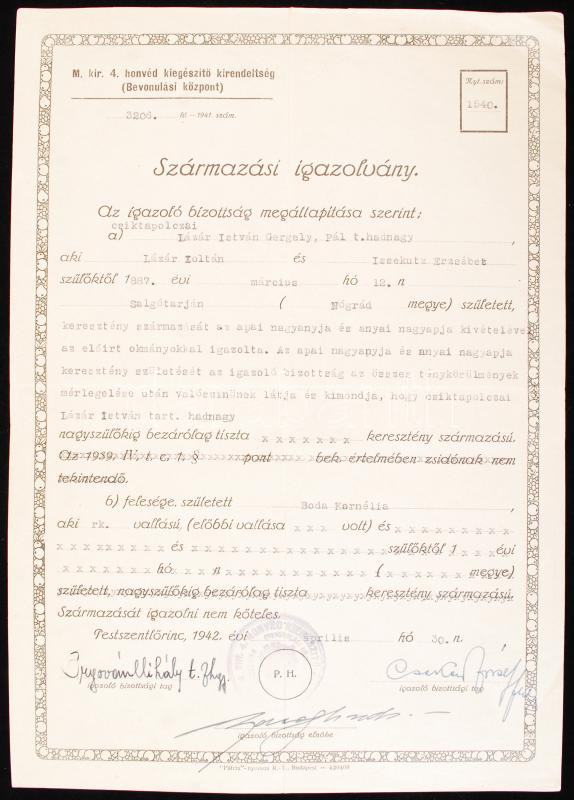 M. kir. 4. honvéd kiegészítő kirendeltség
(Bevonulási központ)
Nyt. szám:
1840.
3206. fő — 1941. szám.
Származási igazolvány.
Az igazoló bizottság megállapítása szerint;
csiktapolczai
a) Lázár István Gergely, Pál t.hadnagy ,
aki Lázár Zoltán és Issekutz Erzsébet
szülőktől 1887. évi március hó 12.n
Salgótarján ( Nógrád megye) született,
keresztény származását az apai nagyanyja és anyai nagyapja kivételével
az előirt okmányokkal igazolta. Az apai nagyanyja és anyai nagyapja
keresztény születését az igazoló bizottság az összes ténykörülmények
mérlegelése után valószinünek látja és kimondja, hogy csiktapolczai
Lázár István tart. hadnagy
nagyszülőkig bezárólag tiszta x x x x x x x keresztény származású.
Az 1939. IV. t. c. 1. § pont bek. értelmében zsidónak nem
tekintendő.
b) felesége, született Boda Kornélia ,
aki rk. vallású, (előbbi vallása x x x volt) és x x x x x x x x x
x x x x x x x x x és x x x x x x x x x x x x x x szülőktől 1 x x x évi
x x x x x x x hó x x n x x x x x x x x x x x x ( x x x x x megye)
született, nagyszülőkig bezárólag tiszta keresztény származású.
Származását igazolni nem köteles.
Pestszentlőrinc, 1942. évi április hó 30.n ,
Mihály t. fhgy.
igazoló bizottsági tag
P. H.
József
igazoló bizottsági tag
igazoló bizottság elnöke
"Pátria"-nyomda R.-T., Budapest — 420409